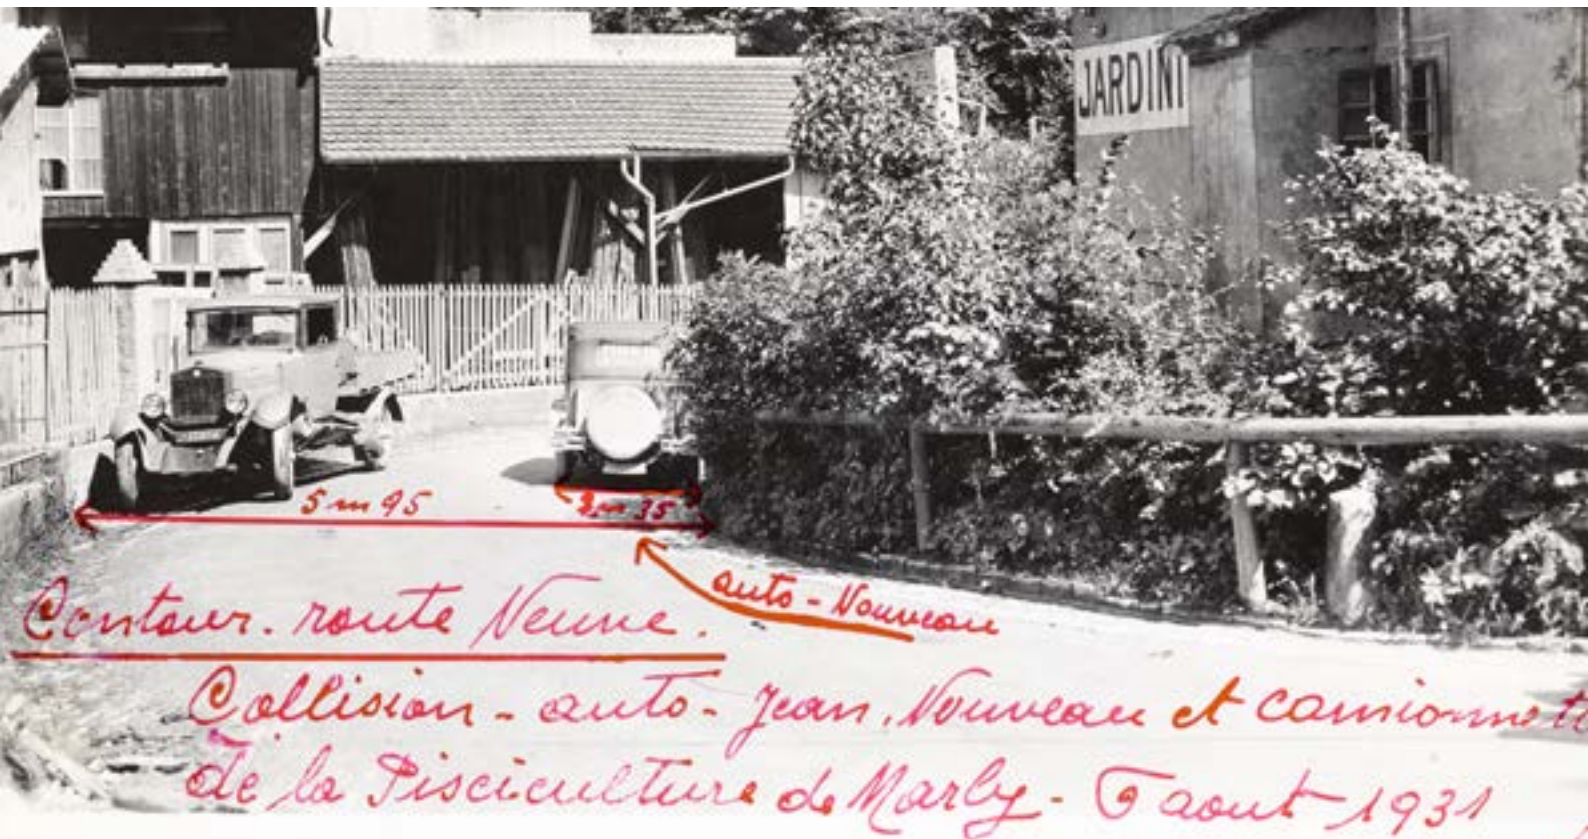 JARDINI
5 m 95
2 m 35
auto - Nouveau
Contour. route Neuve.
Collision - auto - Jean. Nouveau et camionnette
de la Pisciculture de Marly - aout 1931